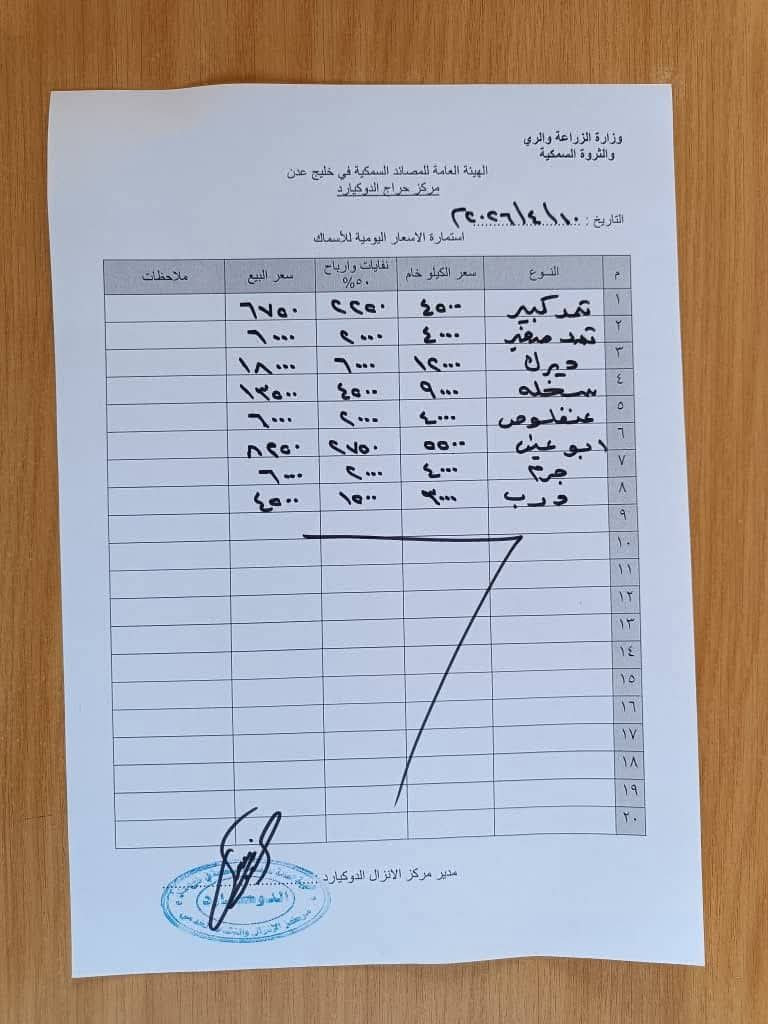 وزارة الزراعة والري
والثروة السمكية
الهيئة العامة للمصائد السمكية في خليج عدن
مركز حراج الدوكيارد
التاريخ : ١٠/٤/٢٠٢٦م
استمارة الاسعار اليومية للأسماك
م النوع سعر الكيلو خام نفايات وارباح ٥٠% سعر البيع ملاحظات
١ ثمد كبير ٤٥٠٠ ٢٢٥٠ ٦٧٥٠
٢ ثمد صغير ٤٠٠٠ ٢٠٠٠ ٦٠٠٠
٣ ديرك ١٢٠٠٠ ٦٠٠٠ ١٨٠٠٠
٤ سخله ٩٠٠٠ ٤٥٠٠ ١٣٥٠٠
٥ عنفلوص ٤٠٠٠ ٢٠٠٠ ٦٠٠٠
٦ ابو عين ٥٥٠٠ ٢٧٥٠ ٨٢٥٠
٧ جرم ٤٠٠٠ ٢٠٠٠ ٦٠٠٠
٨ درب ٣٠٠٠ ١٥٠٠ ٤٥٠٠
٩
١٠
١١
١٢
١٣
١٤
١٥
١٦
١٧
١٨
١٩
٢٠
مدير مركز الانزال الدوكيارد